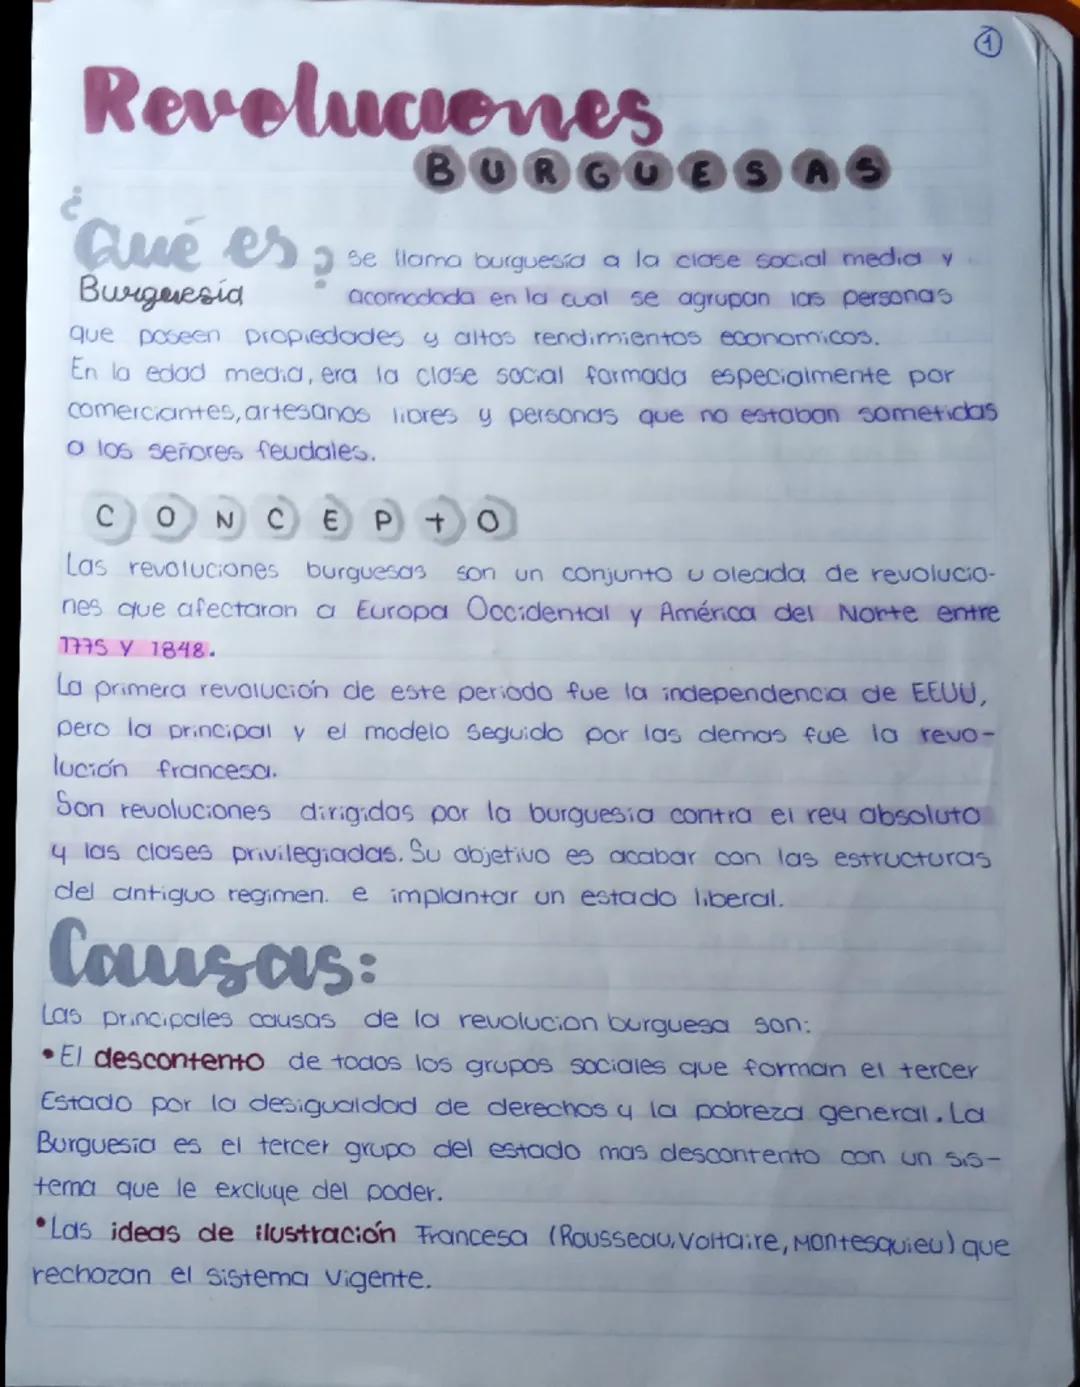 1
Revoluciones
BURGUESAS
¿Qué es? se llama burguesía a la clase social media y
Burguesía acomodada en la cual se agrupan las personas
que poseen propiedades y altos rendimientos economicos.
En la edad media, era la clase social formada especialmente por
comerciantes, artesanos libres y personas que no estaban sometidas
a los señores feudales.
CONCEPTO
Las revoluciones burguesas son un conjunto u oleada de revolucio-
nes que afectaron a Europa Occidental y América del Norte entre
1775 y 1848.
La primera revolución de este periodo fue la independencia de EEUU,
pero la principal y el modelo seguido por las demas fue la revo-
lución francesa.
Son revoluciones dirigidas por la burguesia contra el rey absoluto
y las clases privilegiadas. Su objetivo es acabar con las estructuras
del antiguo regimen. e implantar un estado liberal.
Causas:
Las principales causas de la revolucion burguesa son:
•El descontento de todos los grupos sociales que forman el tercer
Estado por la desigualdad de derechos y la pobreza general. La
Burguesia es el tercer grupo del estado mas descontento con un sis-
tema que le excluye del poder.
•Las ideas de ilustración Francesa (Rousseau, Voltaire, Montesquieu) que
rechazan el sistema vigente.